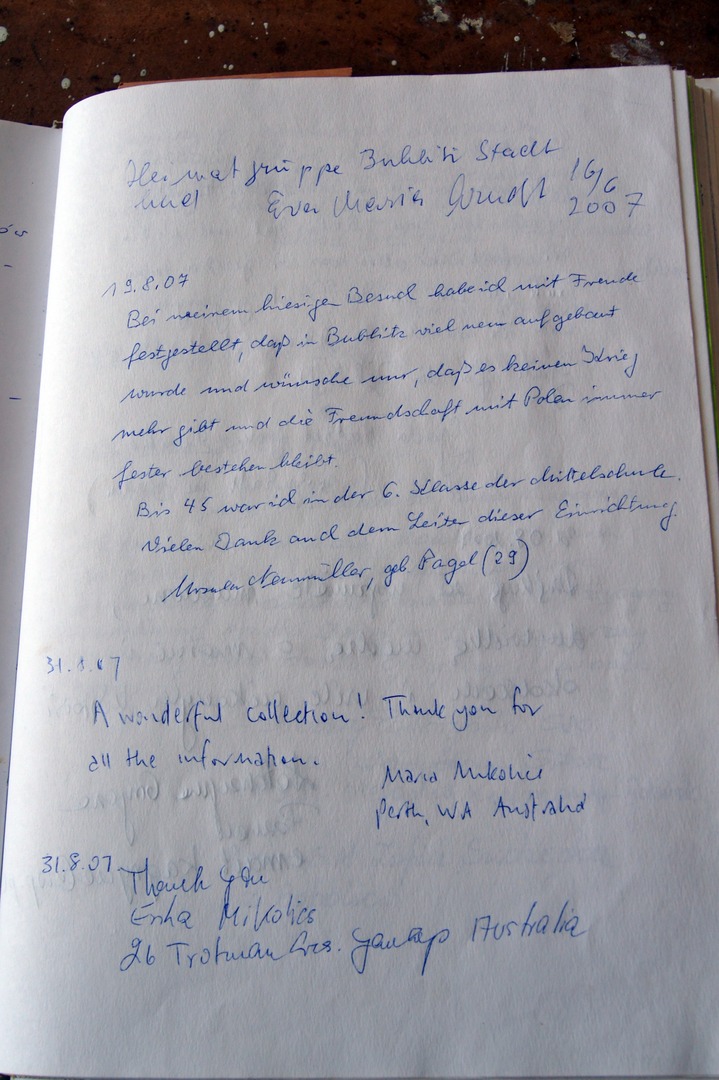 Heimatgruppe Bublitz Stadt
und Eva Maria Arndt 16/6
2007
19.8.07
Bei meinem hiesigen Besuch habe ich mit Freude
festgestellt, daß in Bublitz viel neu aufgebaut
wurde und wünsche nur, daß es keinen Krieg
mehr gibt und die Freundschaft mit Polen immer
fester bestehen bleibt.
Bis 45 war ich in der 6. Klasse der Mittelschule.
Vielen Dank auch dem Leiter dieser Einrichtung.
Ursula Neumüller, geb. Pagel (29)
31.8.07
A wonderful collection! Thank you for
all the information.
Maria Mikolics
Perth, WA Australia
31.8.07
Thank you
Erika Mikolics
26 Trotman Cres. Yanchep Australia